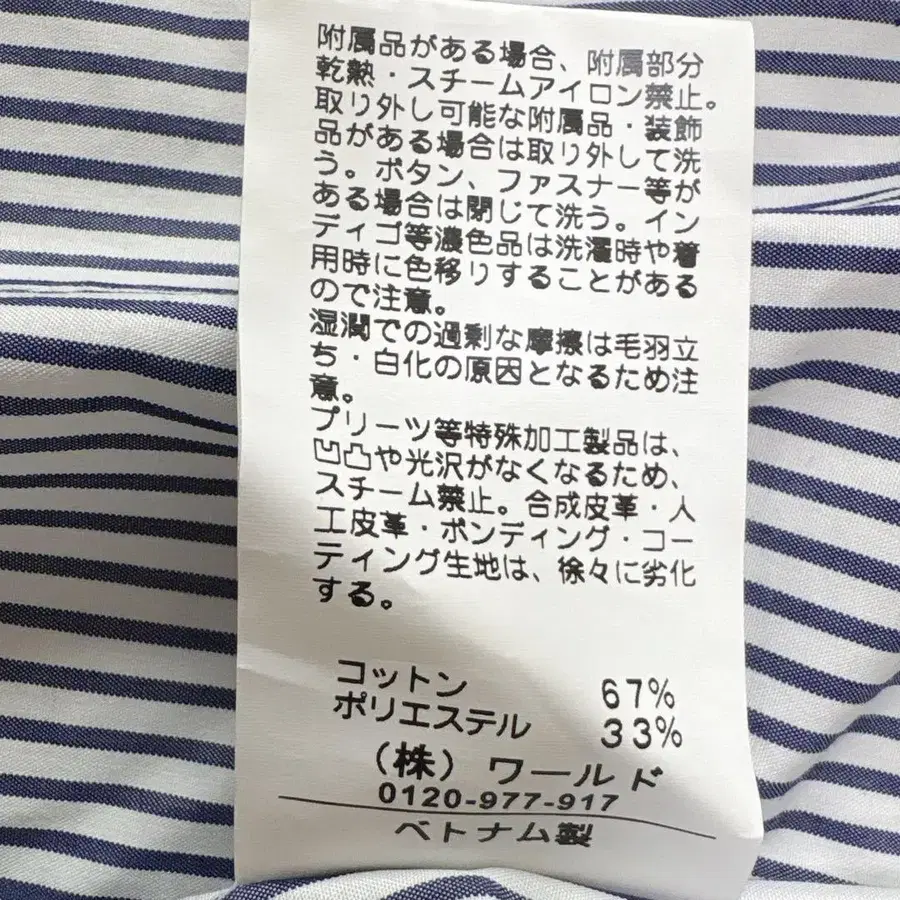 附属品がある場合、附属部分
乾熱・スチームアイロン禁止。
取り外し可能な附属品・装飾
品がある場合は取り外して洗
う。ボタン、ファスナー等が
ある場合は閉じて洗う。イン
ディゴ等濃色品は洗濯時や着
用時に色移りすることがある
ので注意。
湿潤での過剰な摩擦は毛羽立
ち・白化の原因となるため注
意。
プリーツ等特殊加工製品は、
凹凸や光沢がなくなるため、
スチーム禁止。合成皮革・人
工皮革・ボンディング・コー
ティング生地は、徐々に劣化
する。
コットン 67%
ポリエステル 33%
(株) ワールド
0120-977-917
ベトナム製